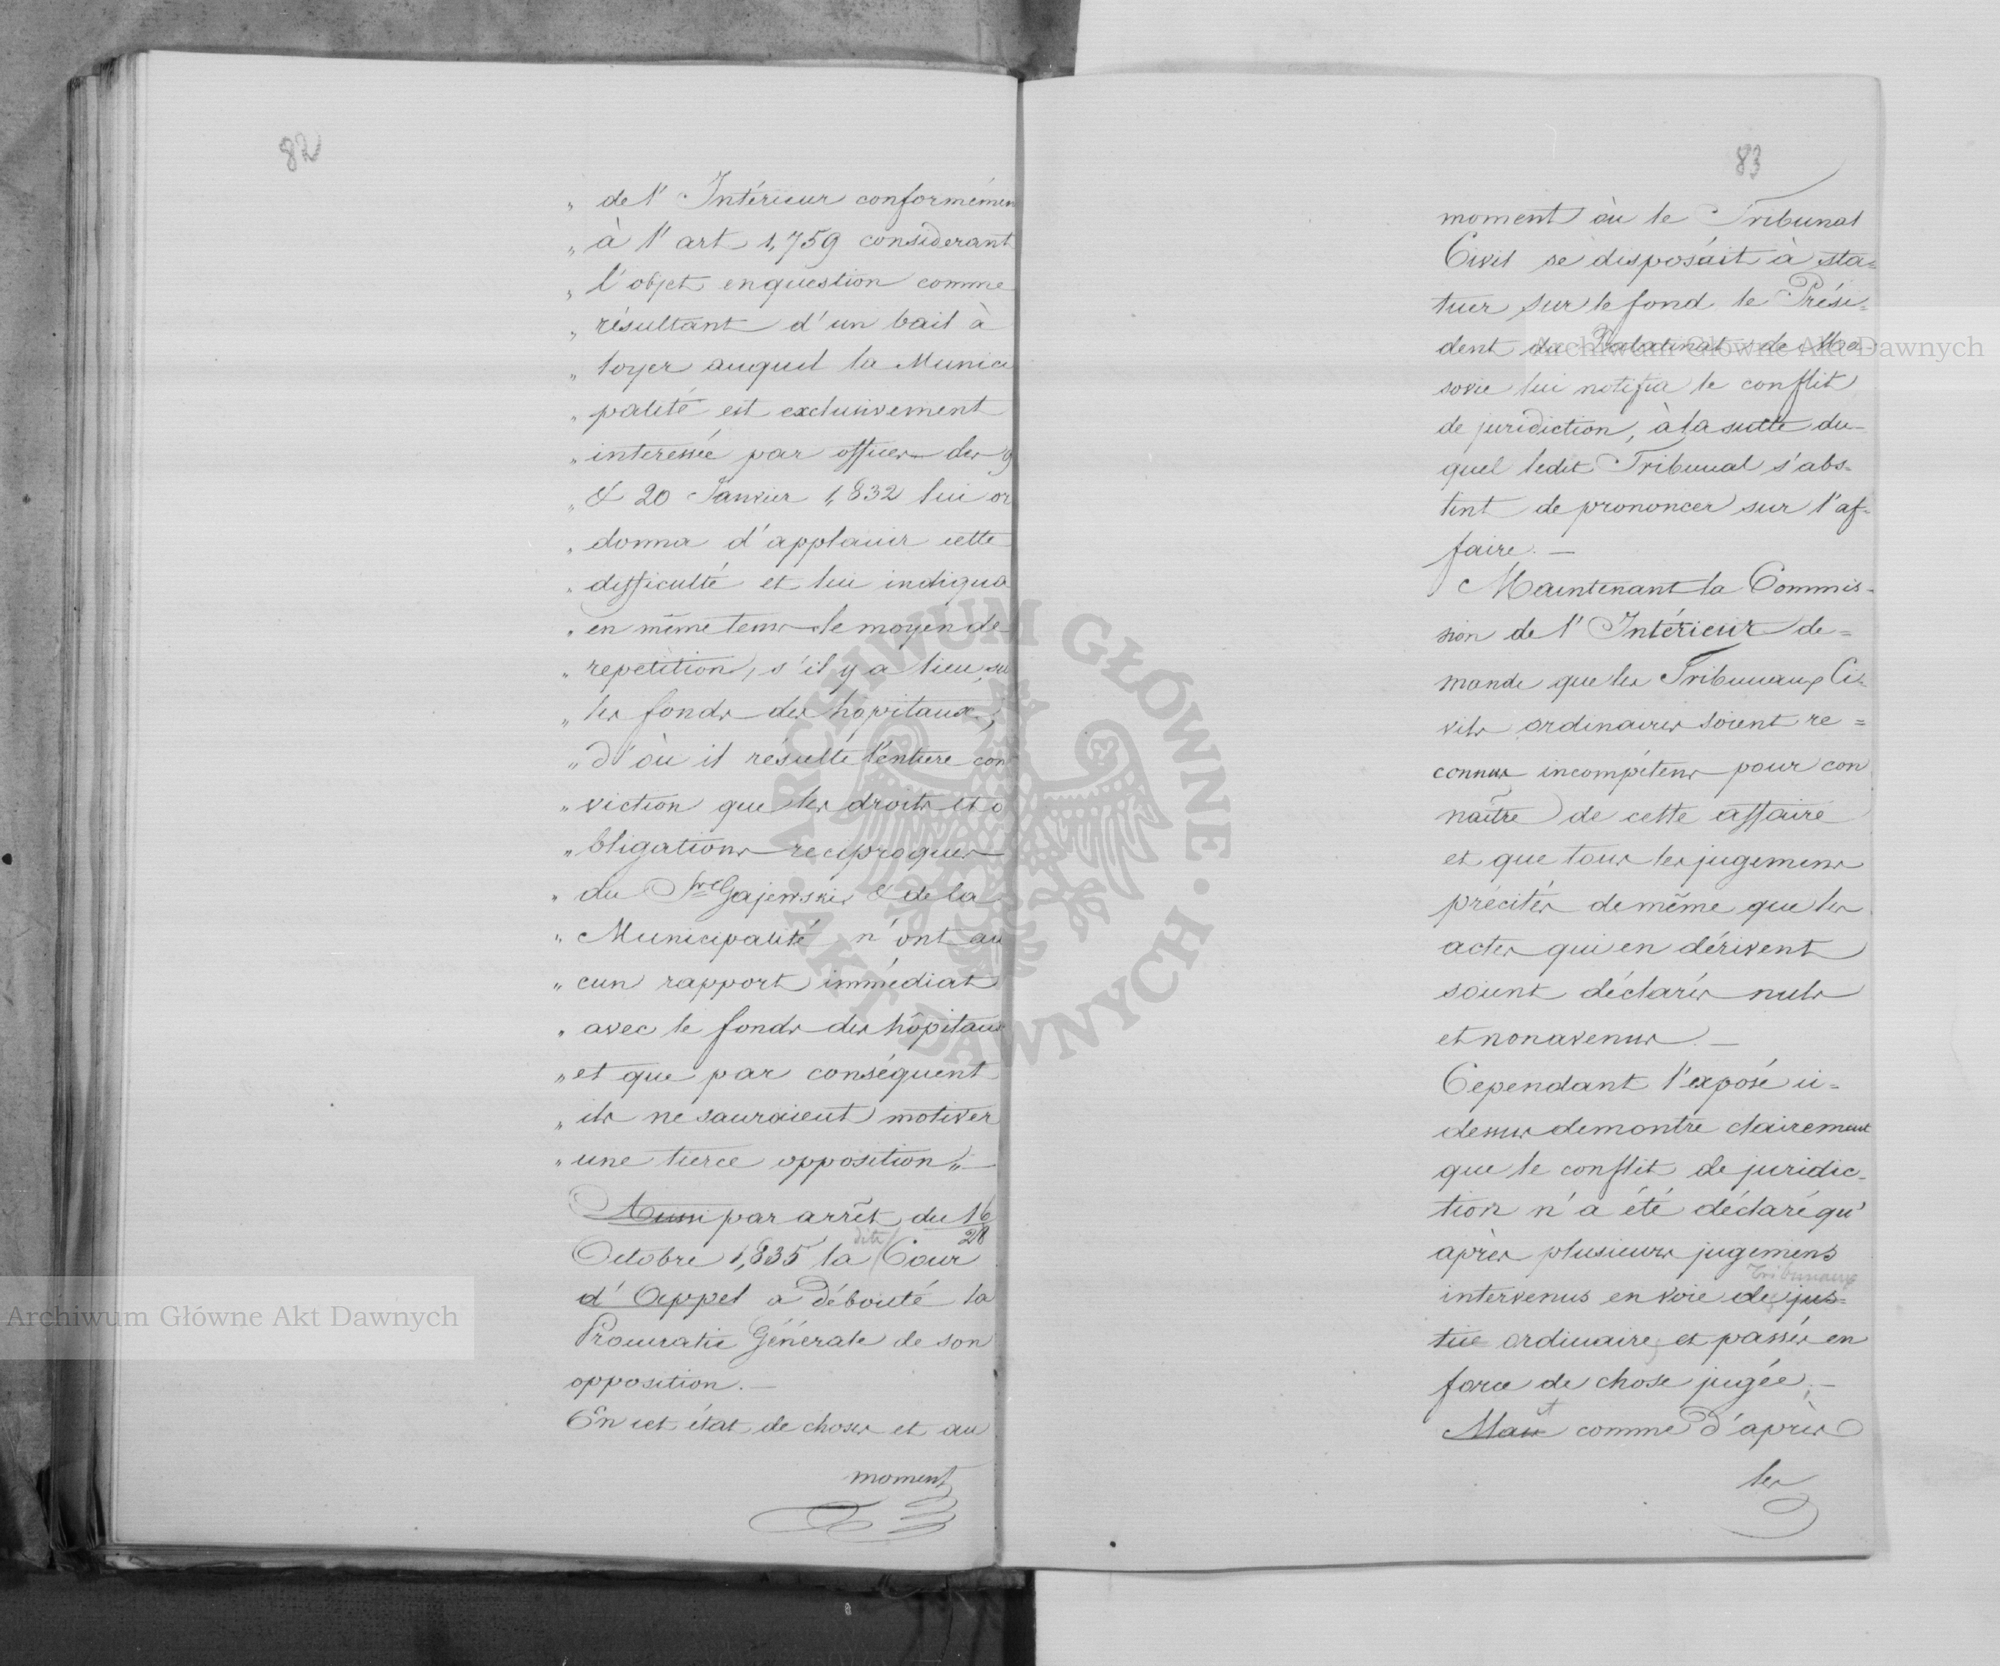 82
„ de l' Intérieur conformémen
„ à l' art 1,759 considerant
„ l'objet en question comme
„ résultant d'un bail à
„ loyer auquel la Munici
„ palité est exclusivement
„ interessée par offices des 9
„ & 20 Janvier 1,832 lui or
„ donna d'applanir cette
„ difficulté et lui indiqua
„ en même tems le moyen de
„ repetition, s'il y a lieu, su
„ les fonds des hôpitaux;
„ d'où il résulte l'entiere con
„ viction que les droits et o
„ bligations reciproques
„ du Sr Gajewski & de la
„ Municipalité n'ont au
„ cun rapport immédiat
„ avec le fonds des hôpitaux
„ et que par conséquent
„ ils ne sauraient motiver
„ une tierce opposition „ —
Aussi par arrêt du 16/28
Octobre 1,835 la dite Cour
d'Appel a débouté la
Procuratie Générale de son
opposition. —
En cet état de choses et au
moment
83
moment où le Tribunal
Civil se disposait à sta=
tuer sur le fond le Prési=
dent du Palatinat de Ma-
sovie lui notifia le conflit
de juridiction, à la suite du-
quel ledit Tribunal s'abs=
tint de prononcer sur l'af-
faire. —
Maintenant la Commis-
sion de l' Intérieur de=
mande que les Tribunaux Ci-
vils ordinaires soient re=
connus incompétens pour con
naître de cette affaire
et que tous les jugemens
précités de même que les
actes qui en dérivent
soient déclarés nuls
et nonavenus. —
Cependant l'exposé ci=
dessus demontre clairement
que le conflit de juridic-
tion n'a été déclaré qu'
après plusieurs jugemens
Tribunaux
intervenus en voie de jus=
tice ordinaire, et passés en
force de chose jugée; —
Mais comme d'après
les
Archiwum Główne Akt Dawnych
Archiwum Główne Akt Dawnych
ARCHIWUM GŁÓWNE · AKT DAWNYCH ·